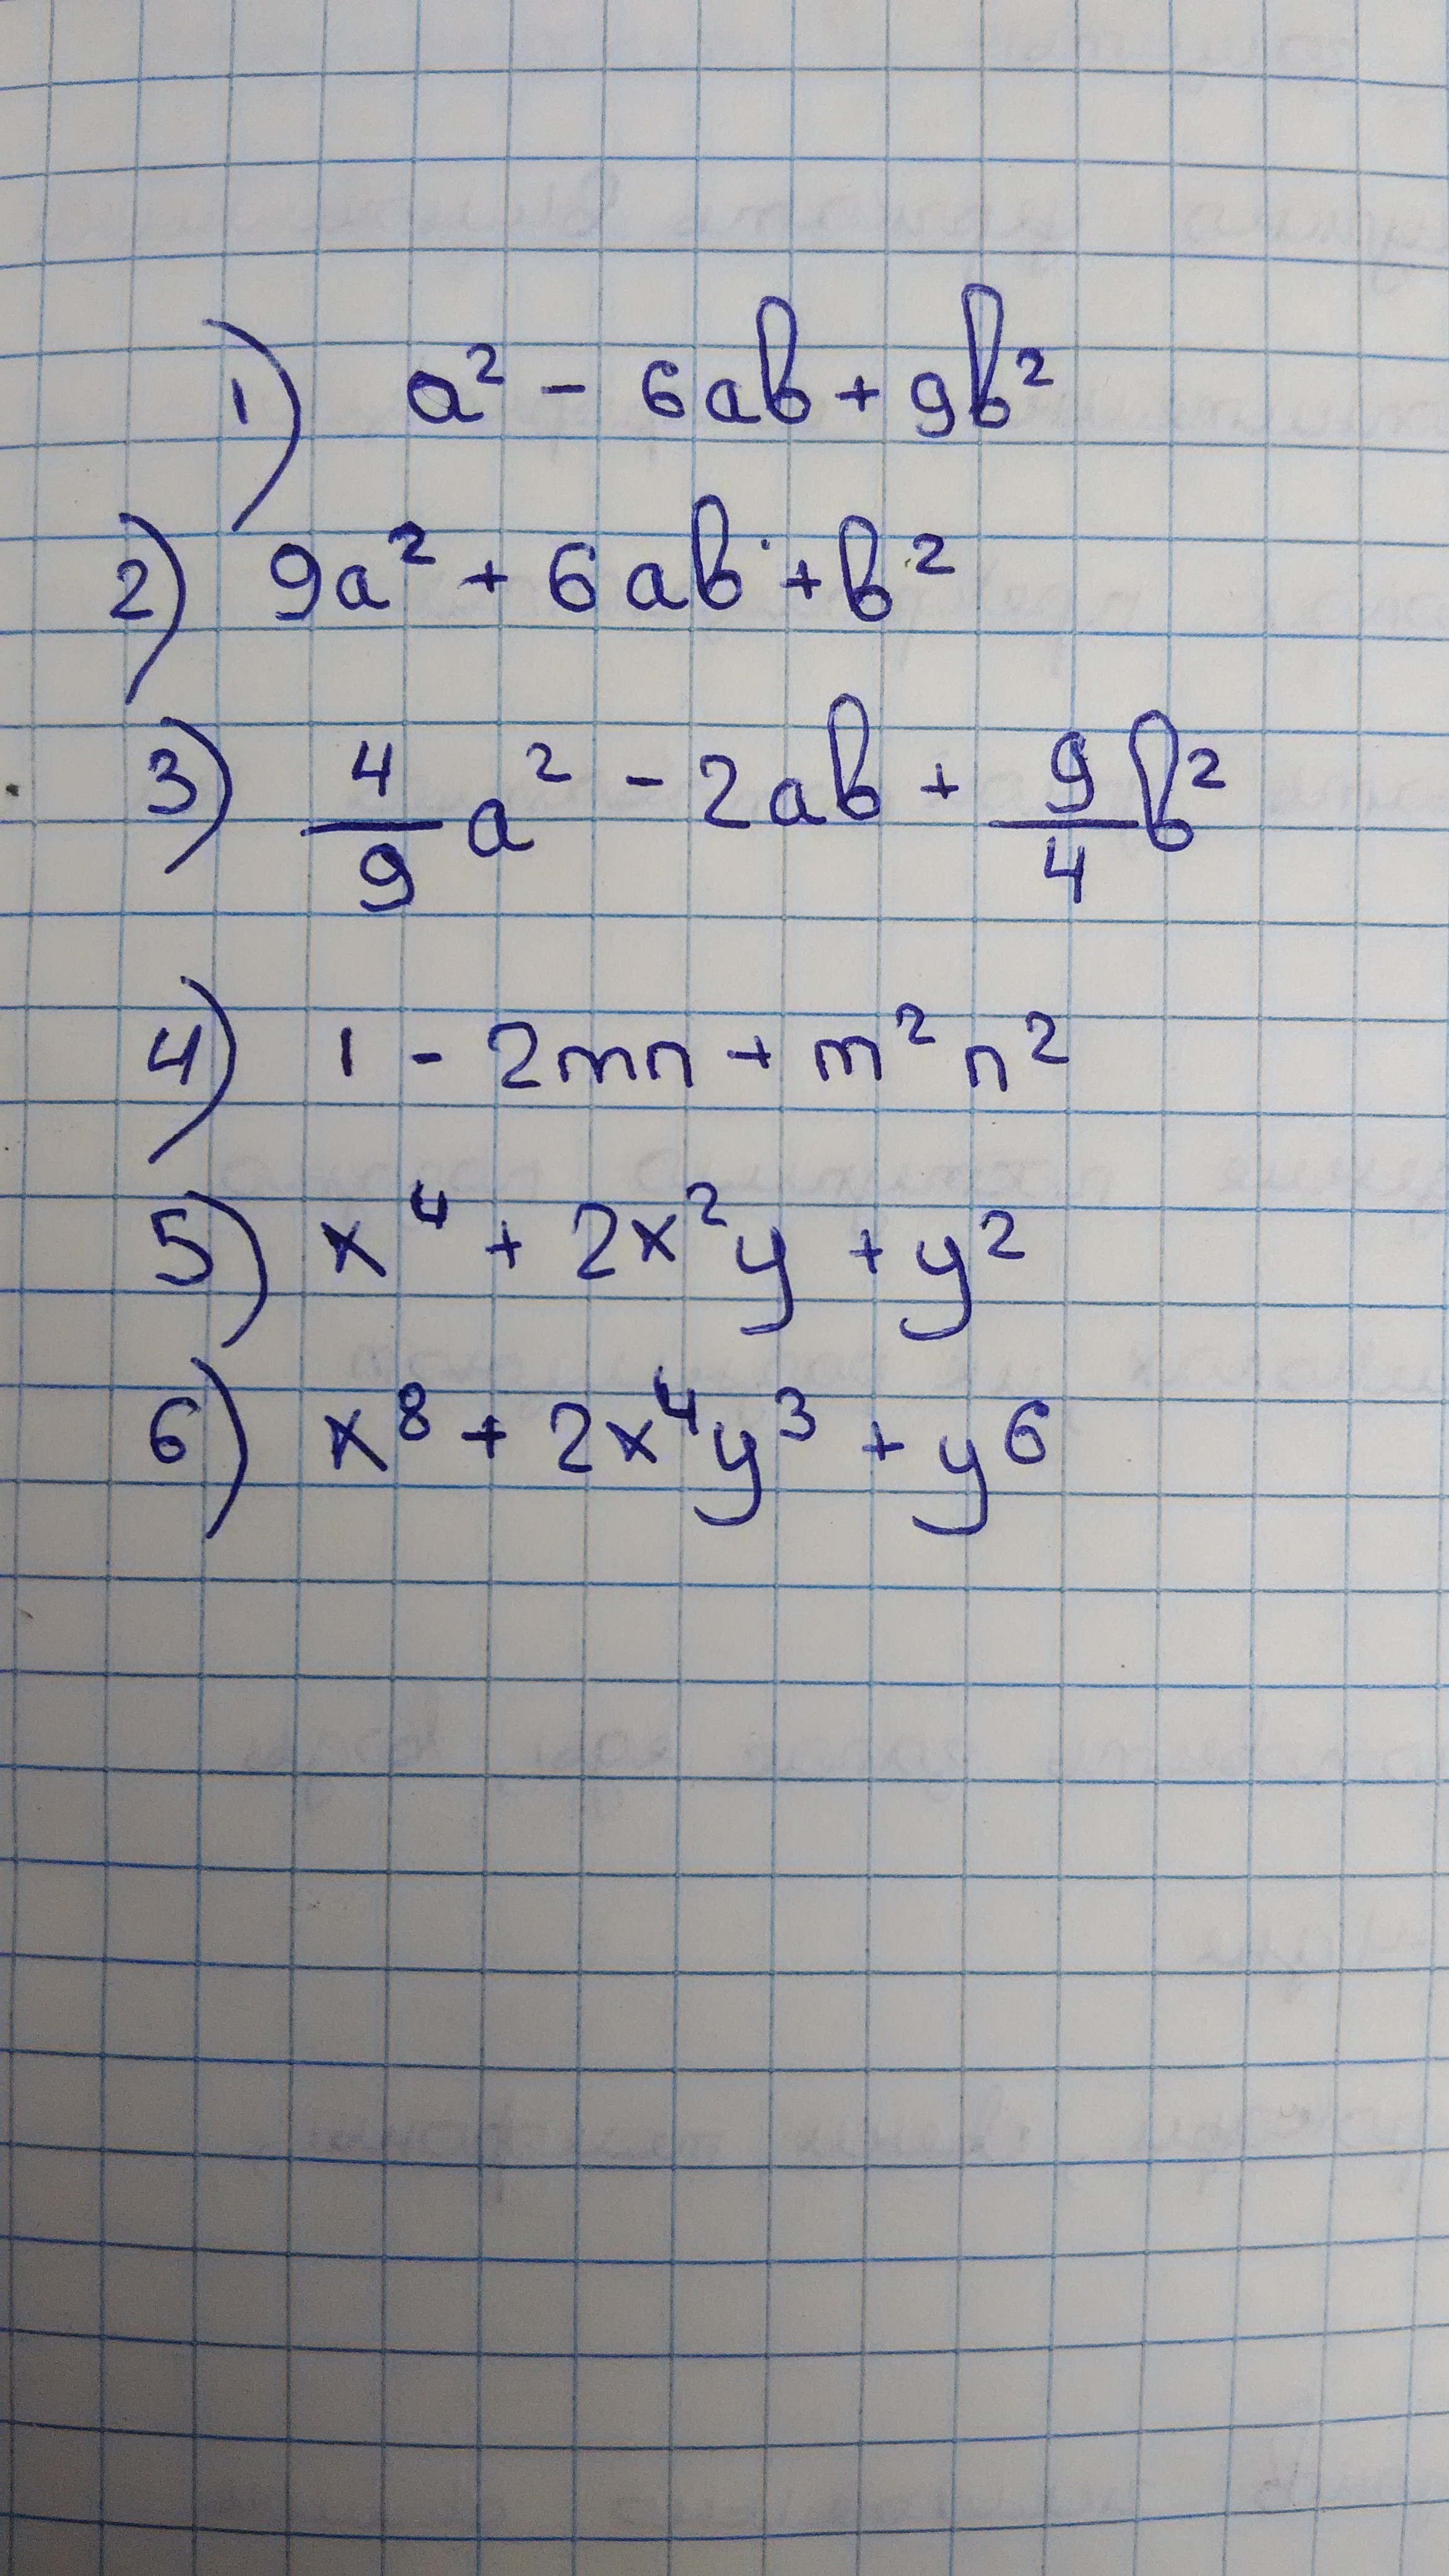 1) a² - 6ab + 9b²
2) 9a² + 6ab + b²
3) 4/9 a² - 2ab + 9/4 b²
4) 1 - 2mn + m²n²
5) x⁴ + 2x²y + y²
6) x⁸ + 2x⁴y³ + y⁶